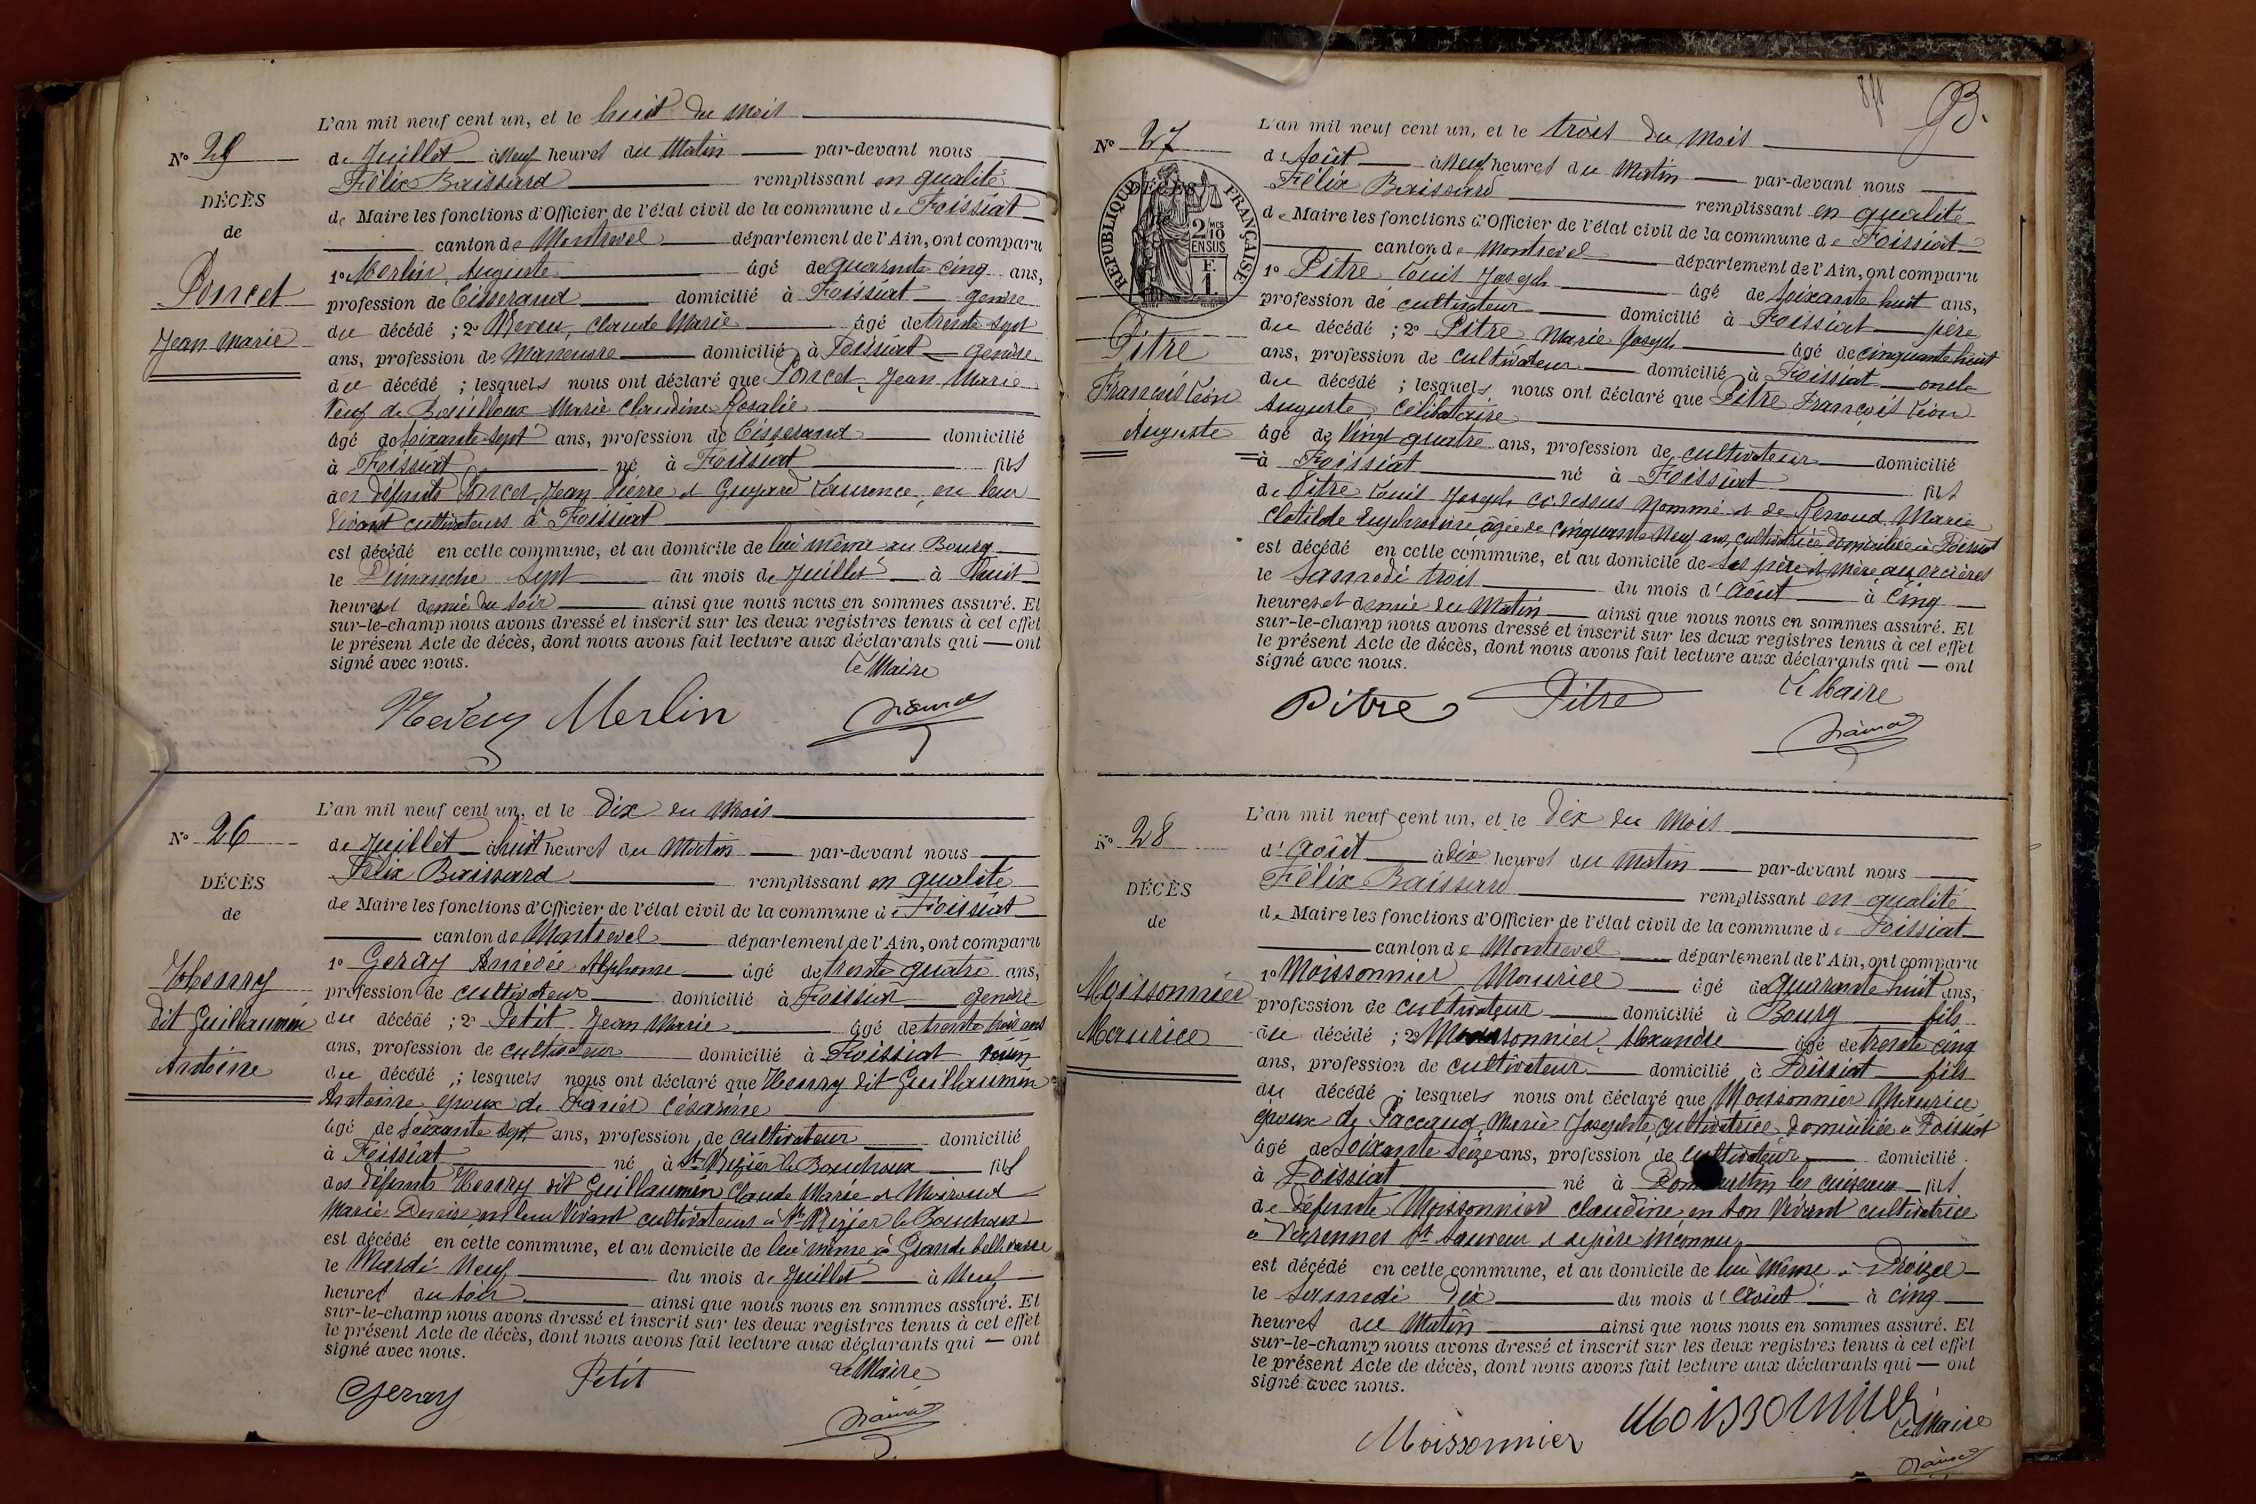 L'an mil neuf cent un, et le huit du mois
N° 25
de Juillet à neuf heures du Matin par-devant nous
Félix Baissard remplissant en qualité
DÉCÈS
de Maire les fonctions d'Officier de l'état civil de la commune de Foissiat
de
canton de Montrevel département de l'Ain, ont comparu
1° Merlin, Auguste âgé de quarante cinq ans,
Poncet
profession de Tisserand domicilié à Foissiat gendre
du décédé ; 2° Neveu, Claude Marie âgé de trente sept
Jean Marie
ans, profession de Manœuvre domicilié à Foissiat gendre
du décédé ; lesquels nous ont déclaré que Poncet, Jean Marie
Veuf de Bouilloux Marie Claudine Rosalie
âgé de soixante sept ans, profession de Tisserand domicilié
à Foissiat né à Foissiat fils
des défunts Poncet, Jean Pierre et Guyard Laurence, en leur
vivant cultivateurs à Foissiat
est décédé en cette commune, et au domicile de lui même au Bourg
le Dimanche sept du mois de Juillet à huit
heures et demie du soir ainsi que nous nous en sommes assuré. Et
sur-le-champ nous avons dressé et inscrit sur les deux registres tenus à cet effet
le présent Acte de décès, dont nous avons fait lecture aux déclarants qui ont
signé avec nous.
Le Maire
Neveu Merlin
L'an mil neuf cent un, et le dix du Mois
N° 26
de Juillet à huit heures du Matin par-devant nous
Félix Baissard remplissant en qualité
DÉCÈS
de Maire les fonctions d'Officier de l'état civil de la commune de Foissiat
de
canton de Montrevel département de l'Ain, ont comparu
1° Geray Amédée Alphonse âgé de trente quatre ans,
Henry
profession de cultivateur domicilié à Foissiat gendre
dit Guillaumin
du décédé ; 2° Petit Jean Marie âgé de trente trois ans
Antoine
ans, profession de cultivateur domicilié à Foissiat voisin
du décédé ; lesquels nous ont déclaré que Henry dit Guillaumin
Antoine époux de Farier Césarine
âgé de soixante sept ans, profession de cultivateur domicilié
à Foissiat né à St Nizier le Bouchoux fils
des défunts Henry dit Guillaumin Claude Marie et Moiroud
Marie Denise en leur vivant cultivateurs à St Nizier le Bouchoux
est décédé en cette commune, et au domicile de lui même à Grande bellevavre
le Mardi Neuf du mois de Juillet à Neuf
heures du soir ainsi que nous nous en sommes assuré. Et
sur-le-champ nous avons dressé et inscrit sur les deux registres tenus à cet effet
le présent Acte de décès, dont nous avons fait lecture aux déclarants qui ont
signé avec nous.
Le Maire
Geray Petit
93.
L'an mil neuf cent un, et le trois du Mois
N° 27
d'Août à neuf heures du Matin par-devant nous
Félix Baissard remplissant en qualité
DÉCÈS
RÉPUBLIQUE FRANÇAISE
2/10 MES EN SUS
F. 1
de Maire les fonctions d'Officier de l'état civil de la commune de Foissiat
canton de Montrevel département de l'Ain, ont comparu
1° Pitre Louis Joseph âgé de soixante huit ans,
profession de cultivateur domicilié à Foissiat père
Pitre
du décédé ; 2° Pitre, Marie Joseph âgé de cinquante huit
ans, profession de cultivateur domicilié à Foissiat oncle
François Léon
du décédé ; lesquels nous ont déclaré que Pitre François Léon
Auguste
Auguste, célibataire
âgé de vingt quatre ans, profession de cultivateur domicilié
à Foissiat né à Foissiat fils
de Pitre Louis Joseph ci-dessus nommé et de Renoud, Marie
Clotilde Euphrosine âgée de cinquante neuf ans, cultivatrice domiciliée à Foissiat
est décédé en cette commune, et au domicile de ses père et mère aux orcières
le samedi trois du mois d'Août à cinq
heures et demie du Matin ainsi que nous nous en sommes assuré. Et
sur-le-champ nous avons dressé et inscrit sur les deux registres tenus à cet effet
le présent Acte de décès, dont nous avons fait lecture aux déclarants qui ont
signé avec nous.
Pitre Pitre Le Maire
L'an mil neuf cent un, et le dix du Mois
N° 28
d'Août à dix heures du Matin par-devant nous
Félix Baissard remplissant en qualité
DÉCÈS
de Maire les fonctions d'Officier de l'état civil de la commune de Foissiat
de
canton de Montrevel département de l'Ain, ont comparu
Moissonnier
1° Moissonnier Maurice âgé de quarante huit ans,
profession de cultivateur domicilié à Bourg fils
Maurice
du décédé ; 2° Moissonnier, Alexandre âgé de trente cinq
ans, profession de cultivateur domicilié à Foissiat fils
du décédé ; lesquels nous ont déclaré que Moissonnier Maurice
époux de Paccaud, Marie Josephte, cultivatrice domiciliée à Foissiat
âgé de soixante seize ans, profession de cultivateur domicilié
à Foissiat né à Dommartin les cuiseaux fils
de défunte Moissonnier Claudine en son vivant cultivatrice
à Varennes St Sauveur et de père inconnu
est décédé en cette commune, et au domicile de lui même à Broizel
le samedi dix du mois d'Août à cinq
heures du Matin ainsi que nous nous en sommes assuré. Et
sur-le-champ nous avons dressé et inscrit sur les deux registres tenus à cet effet
le présent Acte de décès, dont nous avons fait lecture aux déclarants qui ont
signé avec nous.
Moissonnier Moissonnier Le Maire